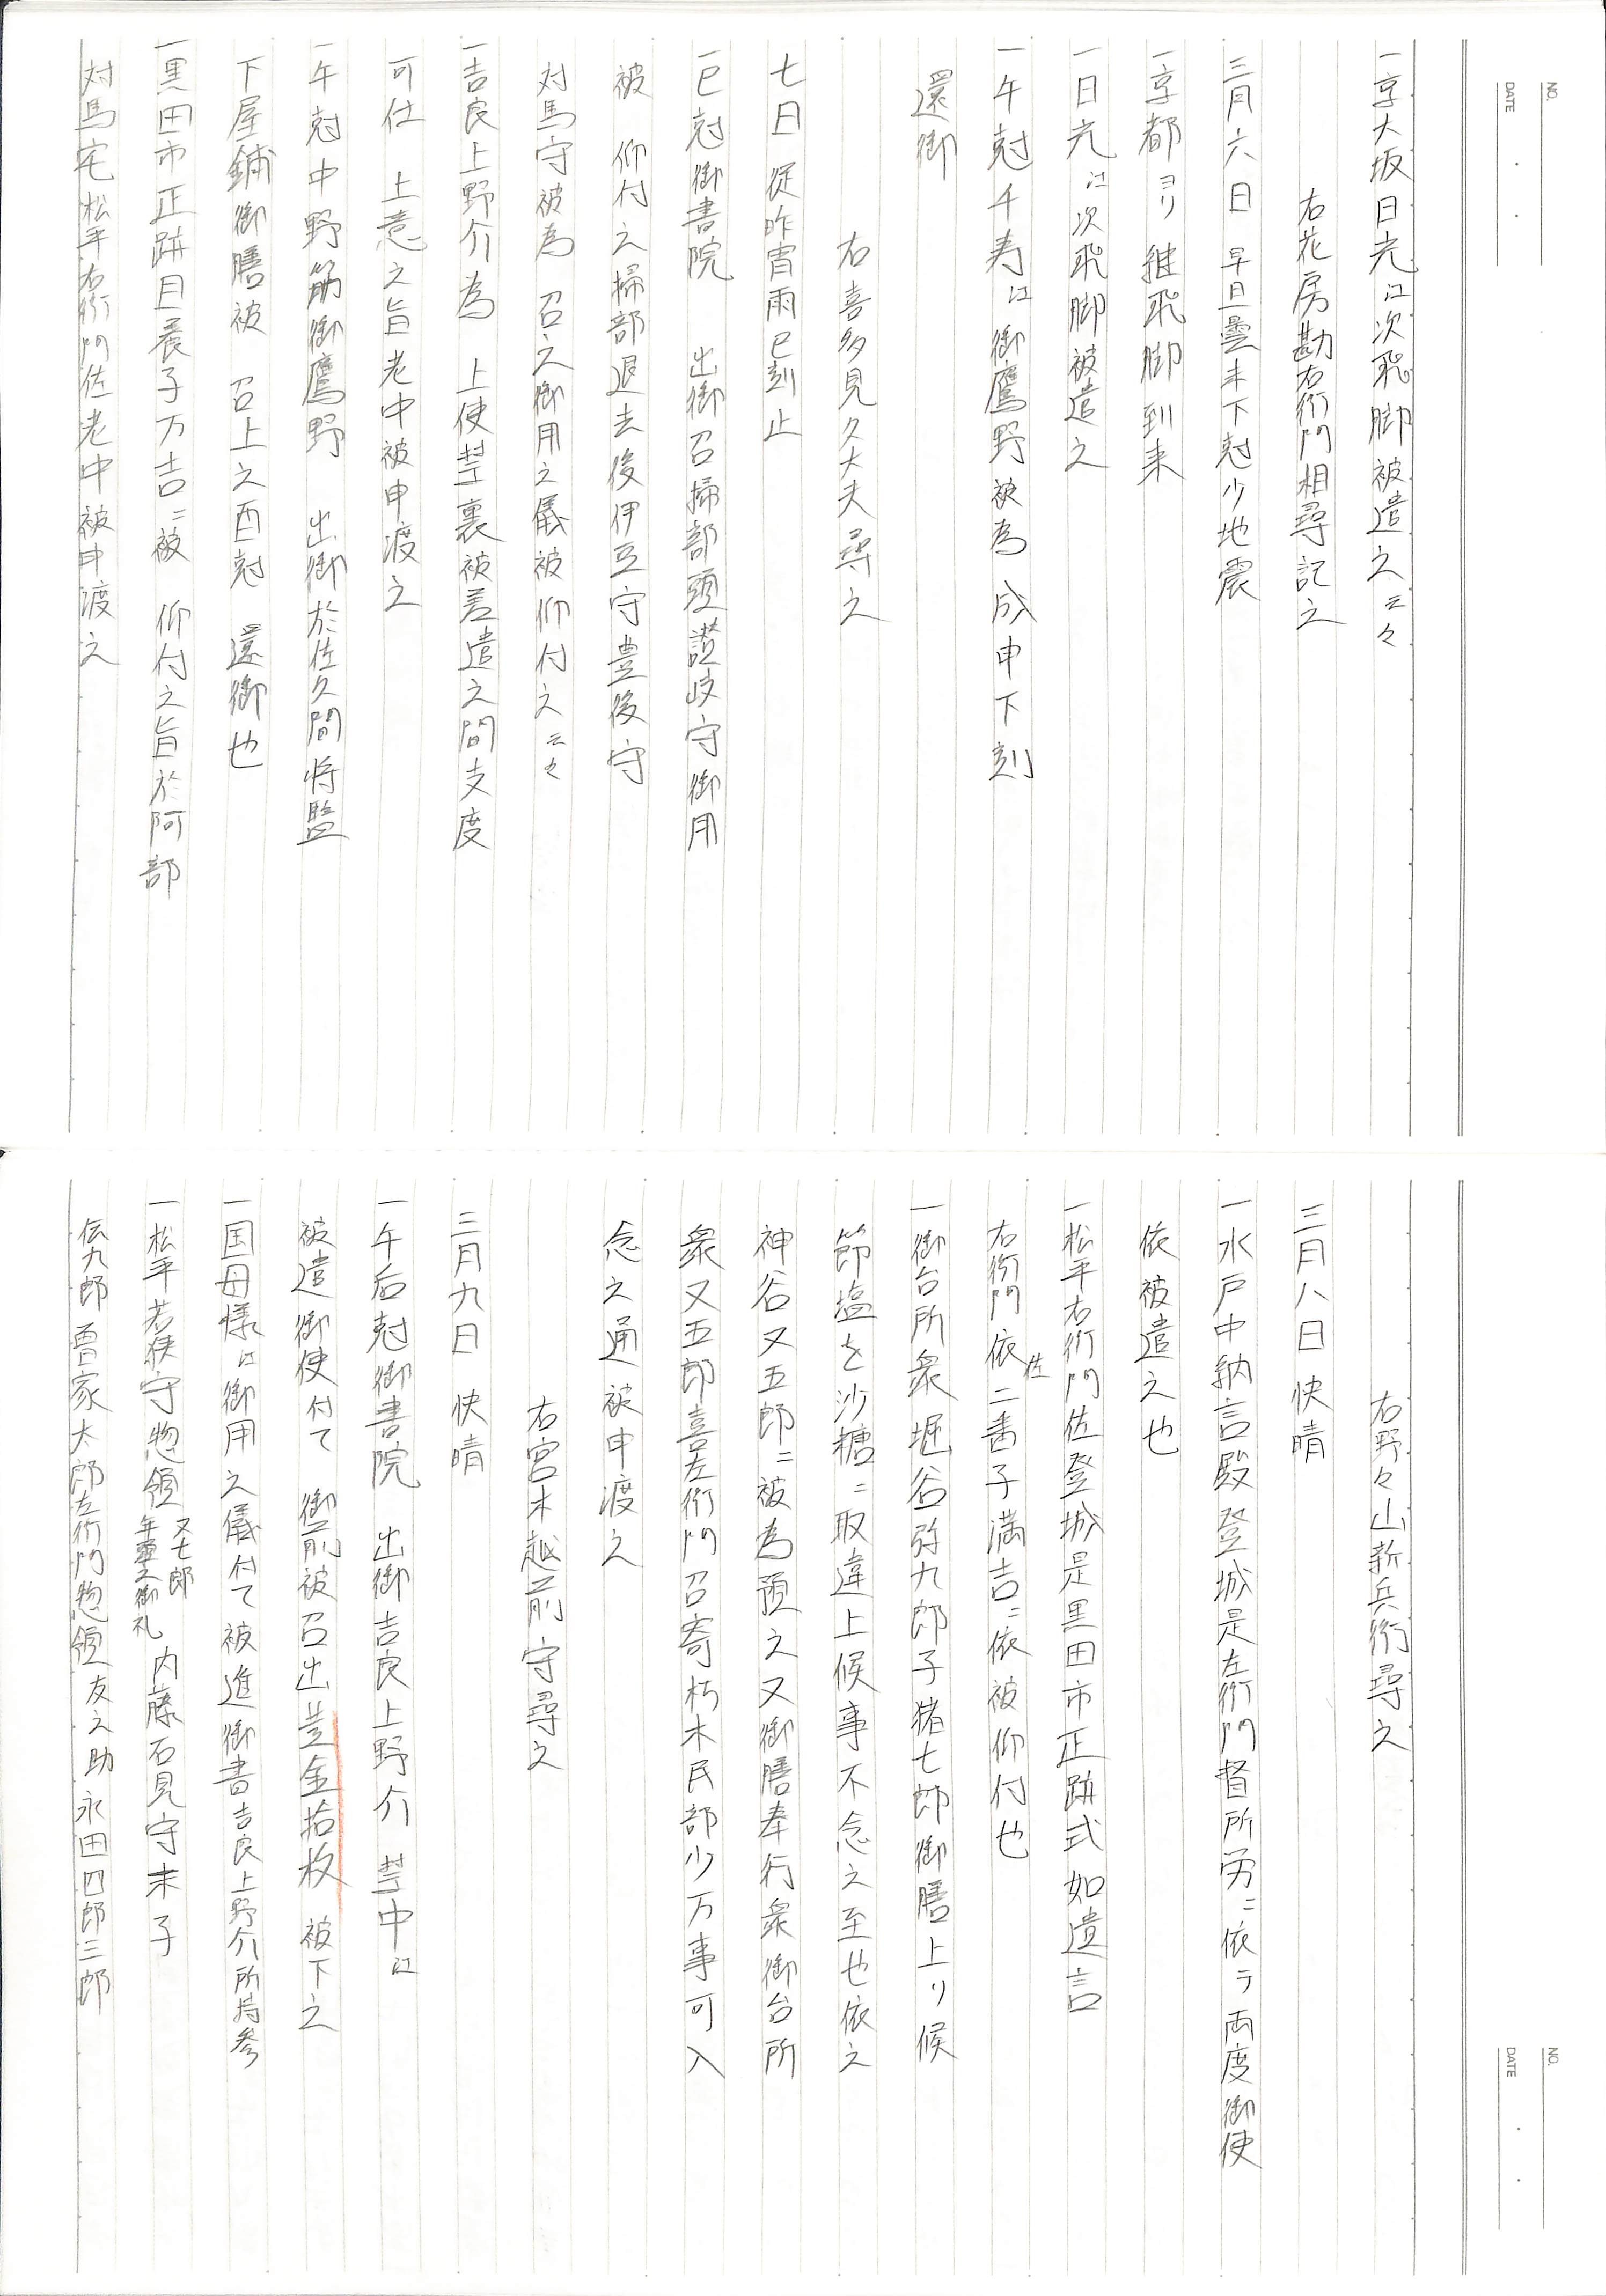 NO.
DATE
一京大坂日光江次飛脚被遣之云々
右花房勘右衛門相尋記之
三月六日 早旦曇未下尅少地震
一京都ヨリ継飛脚到来
一日光江次飛脚被遣之
一午尅千寿江御鷹野被為 成申下刻
還御
右喜多見久大夫尋之
七日 従昨宵雨巳刻止
一巳尅御書院 出御召掃部頭讃岐守御用
被 仰付之掃部退去後伊豆守豊後守
対馬守被為 召之御用之儀被 仰付之云々
一吉良上野介為 上使禁裏被差遣之間支度
可仕 上意之旨老中被申渡之
一午尅中野筋御鷹野 出御於佐久間将監
下屋鋪御膳被 召上之酉尅 還御也
一黒田市正跡目養子万吉ニ被 仰付之旨於阿部
対馬宅松平右衛門佐老中被申渡之
NO.
DATE
右野々山新兵衛尋之
三月八日 快晴
一水戸中納言殿登城是左衛門督所労ニ依テ両度御使
依被遣之也
一松平右衛門佐登城是黒田市正跡式如遺言
右衛門佐依二番子満吉ニ依被仰付也
一御台所衆堀谷弥九郎子猪七郎御膳上リ候
節塩を沙糖ニ取違上候事不念之至也依之
神谷又五郎ニ被為預之又御膳奉行衆御台所
衆又五郎喜左衛門召寄朽木民部少万事可入
念之通被申渡之
右宮木越前守尋之
三月九日 快晴
一午后尅御書院 出御吉良上野介 禁中江
被遣御使付て 御前被召出並金拾枚 被下之
一国母様江御用之儀付て被進御書吉良上野介所持参
一松平若狭守惣領又七郎年重之御礼 内藤石見守末子
伝九郎 曽家太郎左衛門惣領友之助 永田四郎三郎